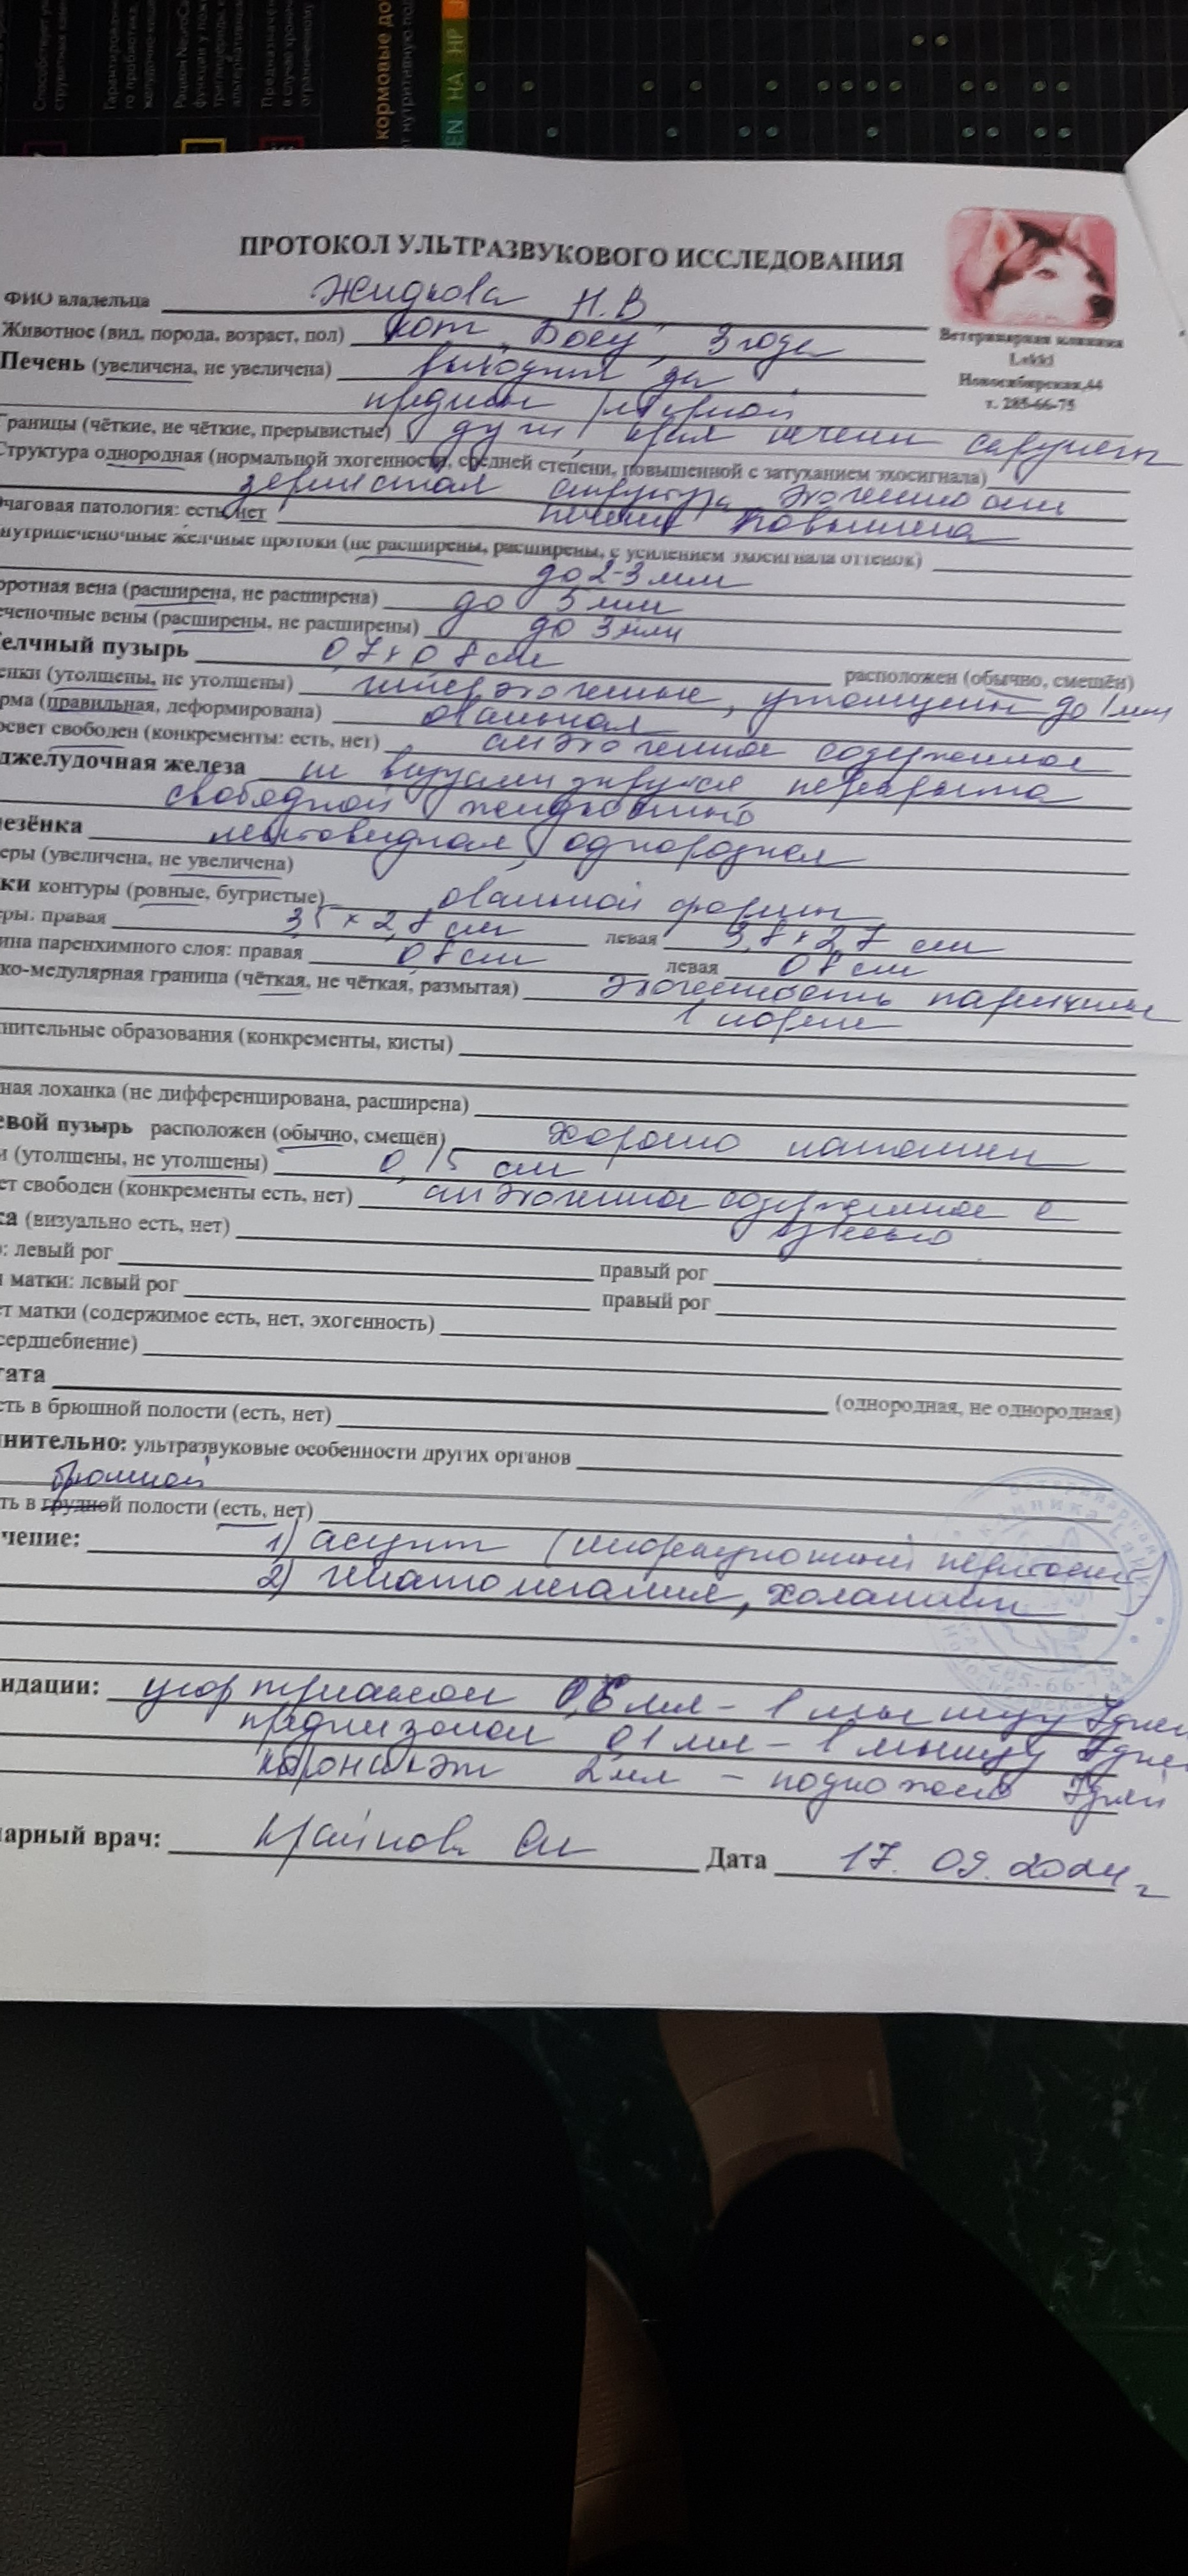 Способствует
струвитных камней
Гарантированное
го пробиотика,
кормовые до
EN HA HP
ПРОТОКОЛ УЛЬТРАЗВУКОВОГО ИССЛЕДОВАНИЯ
ФИО владельца Жидкова Н.В
Ветеринарная клиника
Lakki
Новосибирская,44
т. 285-66-75
Животное (вид, порода, возраст, пол) кот, 3 года
Печень (увеличена, не увеличена) выходит за
пределы реберной
Границы (чёткие, не чёткие, прерывистые) дуги, края печени
Структура однородная (нормальной эхогенности, средней степени, повышенной с затуханием эхосигнала)
зернистая структура, эхогенность
чаговая патология: есть, нет печени повышена
нутрипеченочные желчные протоки (не расширены, расширены, с усилением эхосигнала оттенок)
до 2-3 мм
оротная вена (расширена, не расширена) до 5 мм
еченочные вены (расширены, не расширены) до 3 мм
елчный пузырь 0,7 х 0,8 см расположен (обычно, смещён)
енки (утолщены, не утолщены) гиперэхогенные, утолщены до 1 мм
рма (правильная, деформирована) овальная
освет свободен (конкременты: есть, нет) анэхогенное содержимое
джелудочная железа не визуализируется перекрыта
свободной жидкостью
езёнка листовидная, однородная
еры (увеличена, не увеличена)
ки контуры (ровные, бугристые) овальной формы
еры: правая 3,5 х 2,8 см левая 3,8 х 2,7 см
ина паренхимного слоя: правая 0,8 см левая 0,8 см
ко-медулярная граница (чёткая, не чёткая, размытая) эхогенность паренхимы
в норме
нительные образования (конкременты, кисты)
ная лоханка (не дифференцирована, расширена)
евой пузырь расположен (обычно, смещён) хорошо наполнен
и (утолщены, не утолщены) 0,15 см
ет свободен (конкременты есть, нет) анэхогенное содержимое с
взвесью
ка (визуально есть, нет)
о: левый рог правый рог
и матки: левый рог правый рог
ет матки (содержимое есть, нет, эхогенность)
сердцебиение)
тата (однородная, не однородная)
сть в брюшной полости (есть, нет)
нительно: ультразвуковые особенности других органов
брюшной
ть в грудной полости (есть, нет)
чение: 1) асцит (инфекционный перитонит)
2) гепатомегалия, холангит
ндации: 0,6 мл - 1 мышцу 7 дней
преднизолон 0,1 мл - в мышцу дней
2 мл - подкожно 7 дней
арный врач: Дата 17.09.2024 г